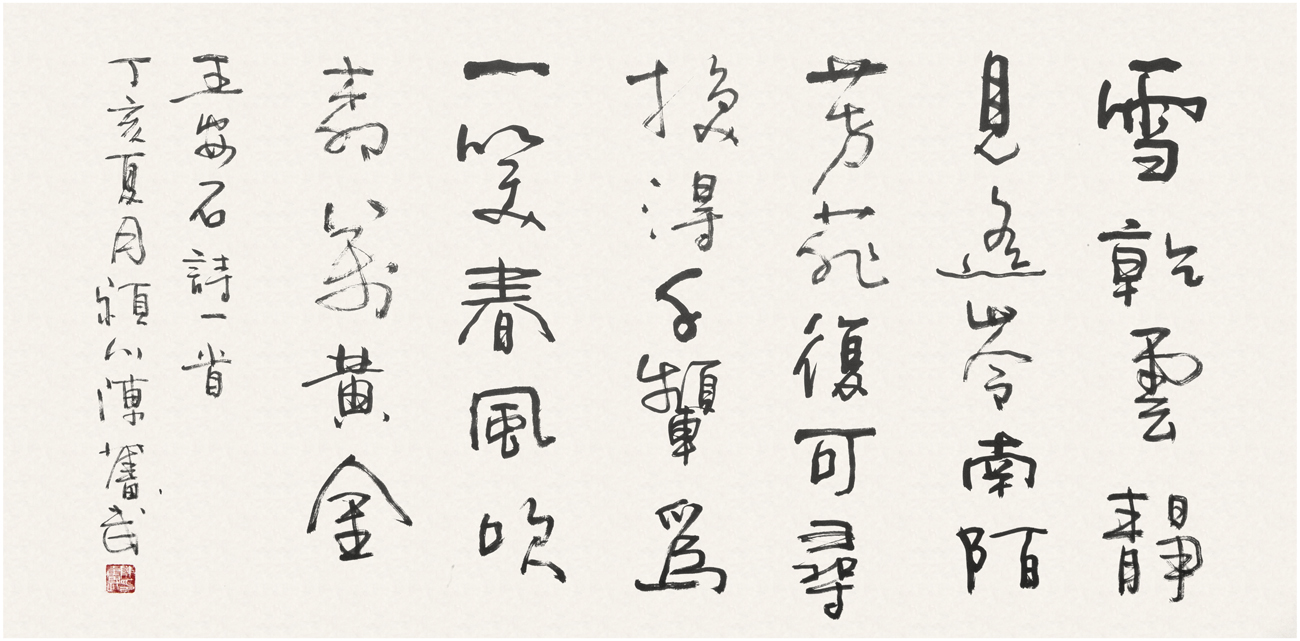 雪乾雲靜
見遙岑南陌
芳菲復可尋
換得千顰爲
一笑春風吹
柳萬黃金
王安石詩一首
丁亥夏月潁川陳